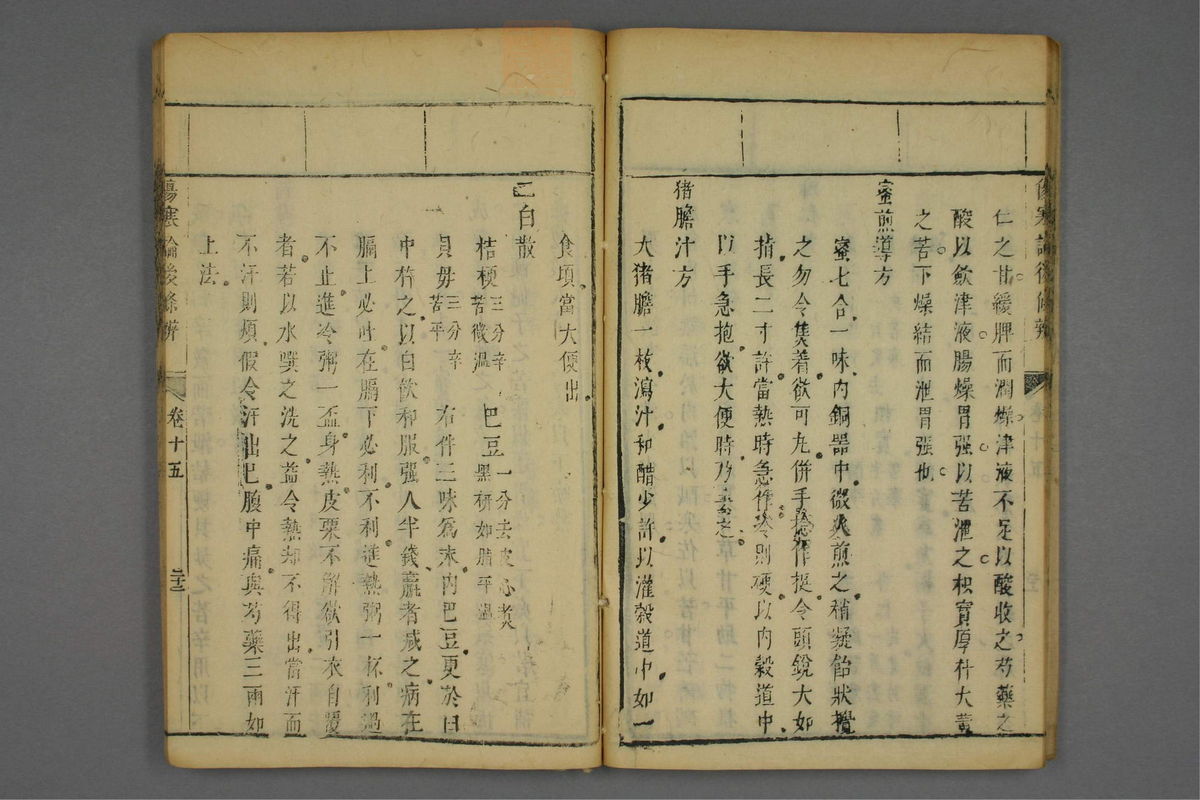 傷寒論後條辨
仁之甘緩脾而潤燥津液不足以酸收之芍藥之
酸以斂津液腸燥胃强以苦泄之枳實厚朴大黄
之苦下燥結而泄胃强也
蜜煎導方
蜜七合一味内銅器中微火煎之稍凝飴狀攪
之勿令焦着欲可丸併手捻作挺令頭銳大如
指長二寸許當熱時急作冷則硬以内榖道中
以手急抱欲大便時乃去之
猪膽汁方
大猪膽一枚瀉汁和醋少許以灌榖道中如一
食頃當大便出
白散
桔梗三分辛苦微温 巴豆一分去皮心煮黑研如脂平温
貝母三分辛苦平 右件三味爲末内巴豆更於臼
中杵之以白飲和服强人半錢羸者减之病在
膈上必吐在膈下必利不利進熱粥一杯利過
不止進冷粥一盃身熱皮栗不解欲引衣自覆
者若以水噀之洗之益令熱却不得出當汗而
不汗則煩假令汗出已腹中痛與芍藥三兩如
上法
傷寒論後條辨 卷十五